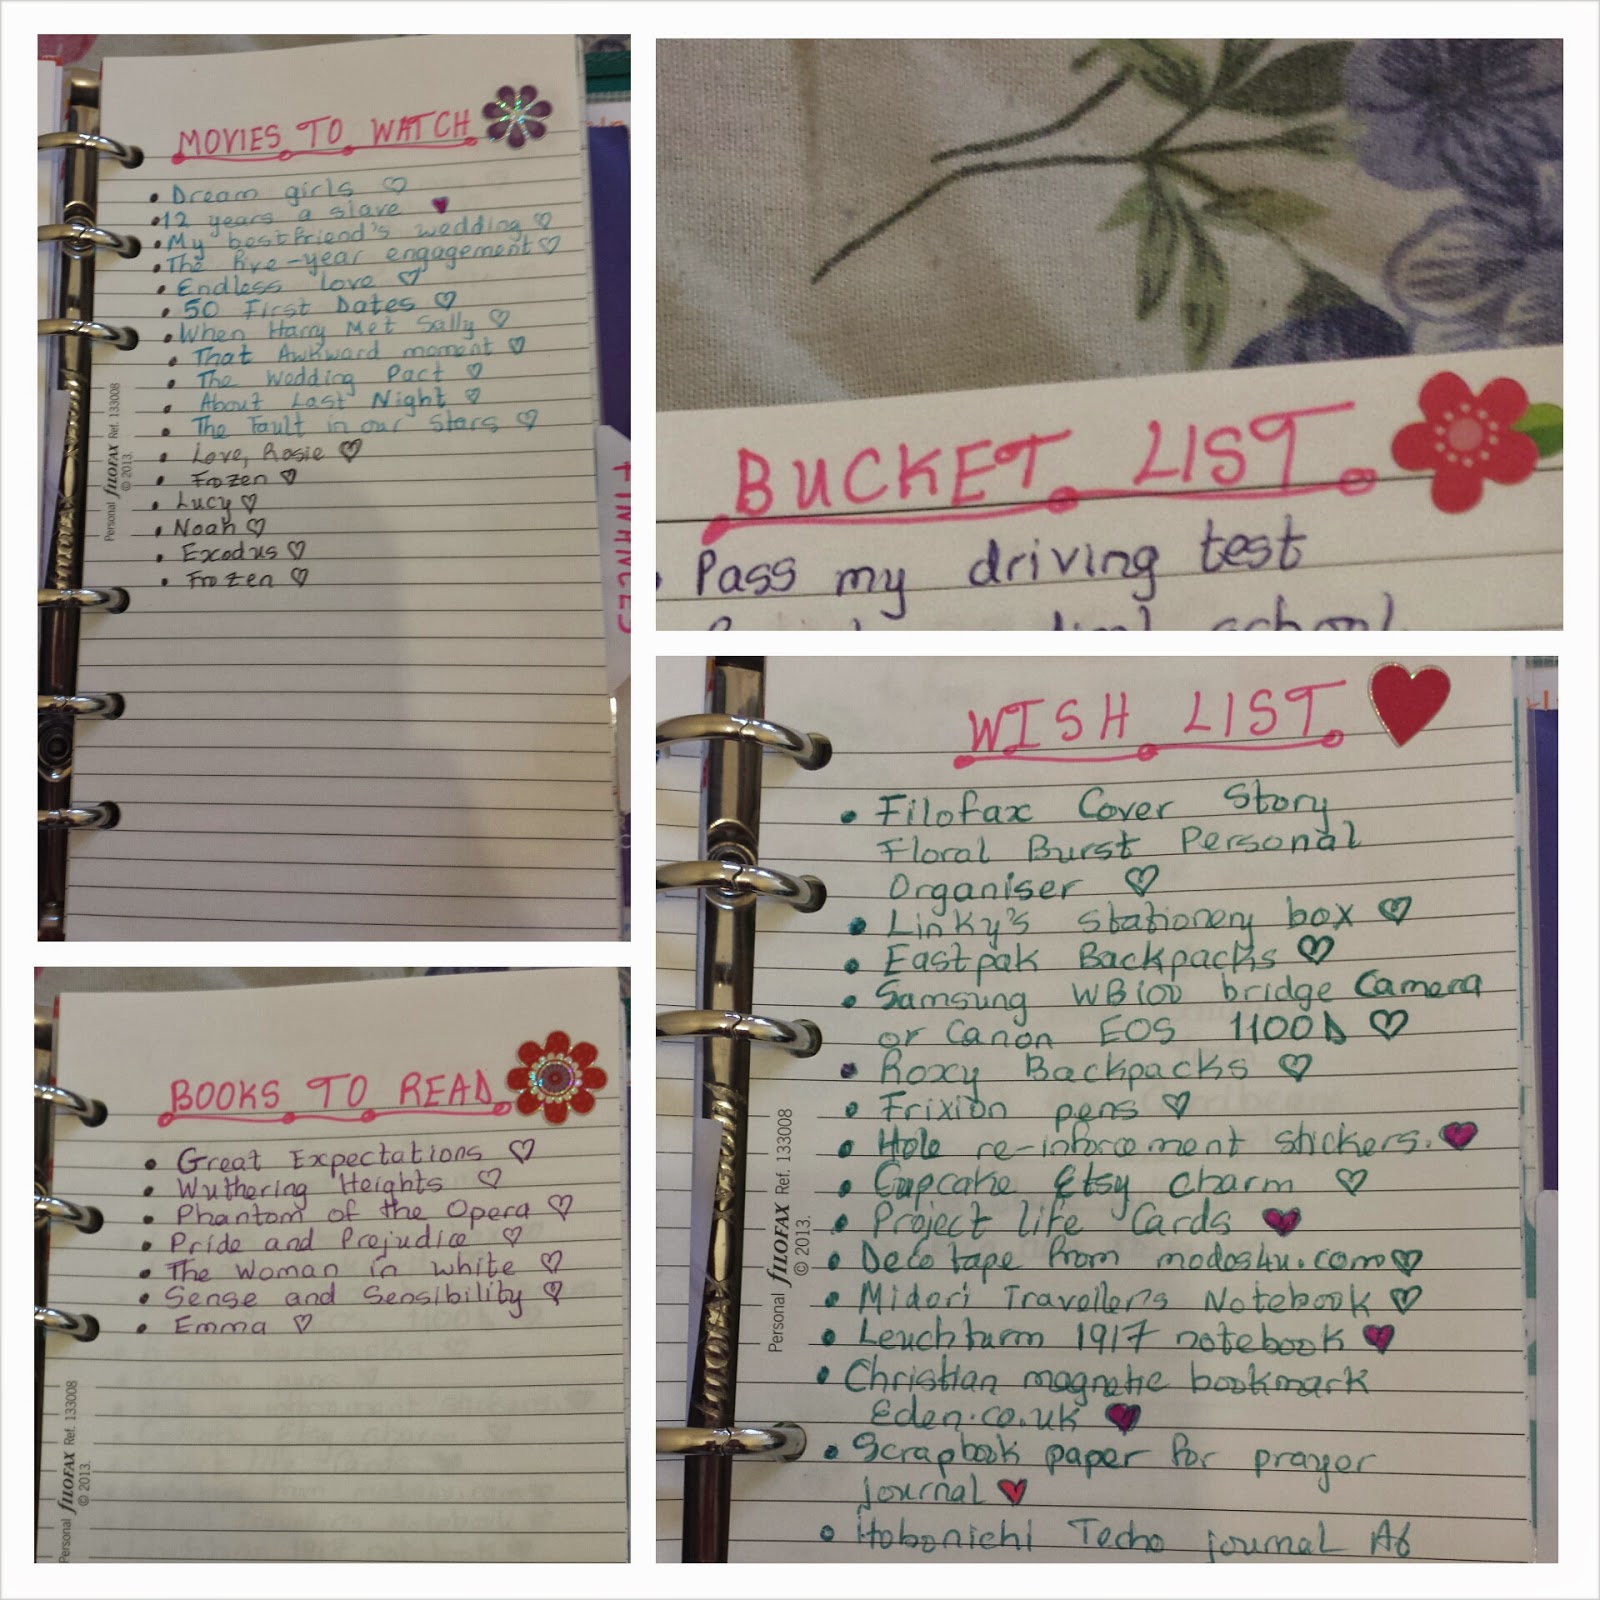 MOVIES TO WATCH
Dream girls
12 years a slave
My bestfriend's wedding
The five-year engagement
Endless love
50 First Dates
When Harry Met Sally
That Awkward moment
The Wedding Pact
About Last Night
The Fault in our Stars
Love, Rosie
Frozen
Lucy
Noah
Exodus
Frozen
Personal FILOFAX Ref. 133008
© 2013.
FINANCES
BUCKET LIST
Pass my driving test
school
BOOKS TO READ
Great Expectations
Wuthering Heights
Phantom of the Opera
Pride and Prejudice
The Woman in white
Sense and Sensibility
Emma
Personal FILOFAX Ref. 133008
© 2013.
WISH LIST
Filofax Cover Story
Floral Burst Personal
Organiser
Linky's stationery box
Eastpak Backpacks
Samsung WB100 bridge Camera
or Canon EOS 1100D
Roxy Backpacks
Frixion pens
Hole re-inforcement stickers.
Cupcake Etsy charm
Project life Cards
Deco tape from modes4u.com
Midori Travellers Notebook
Leuchturm 1917 notebook
Christian magnetic bookmark
Eden.co.uk
Scrapbook paper for prayer
journal
Hobonichi Techo journal A6
Personal FILOFAX Ref. 133008
© 2013.